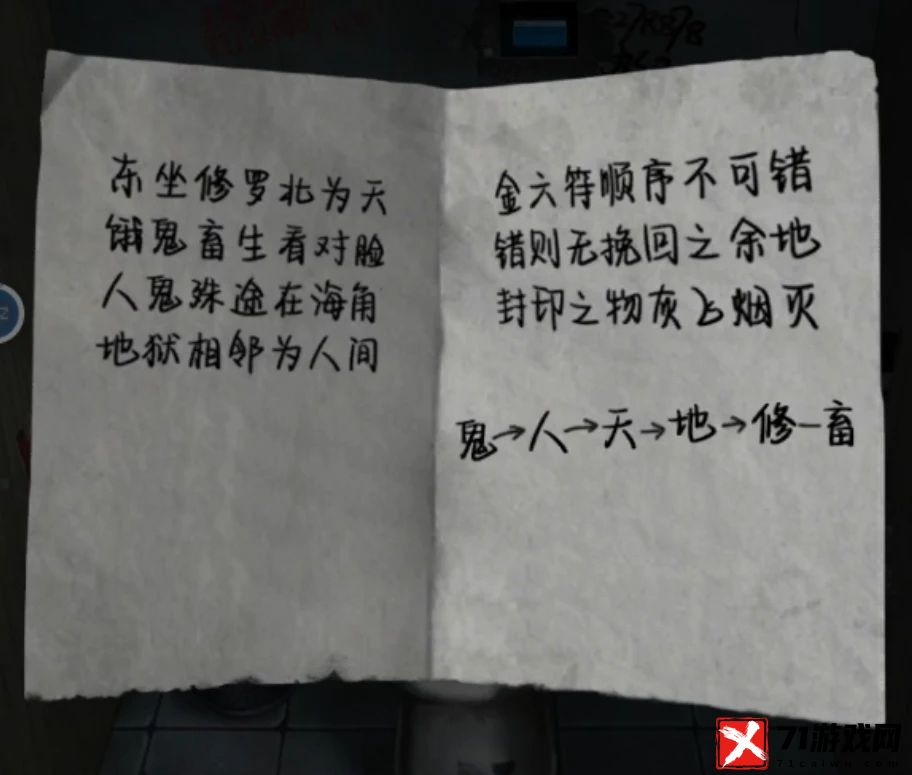 东坐修罗北为天
饿鬼畜生看对脸
人鬼殊途在海角
地狱相邻为人间
金六符顺序不可错
错则无挽回之余地
封印之物灰飞烟灭
鬼→人→天→地→修—畜
71游戏网
71caiwu.com